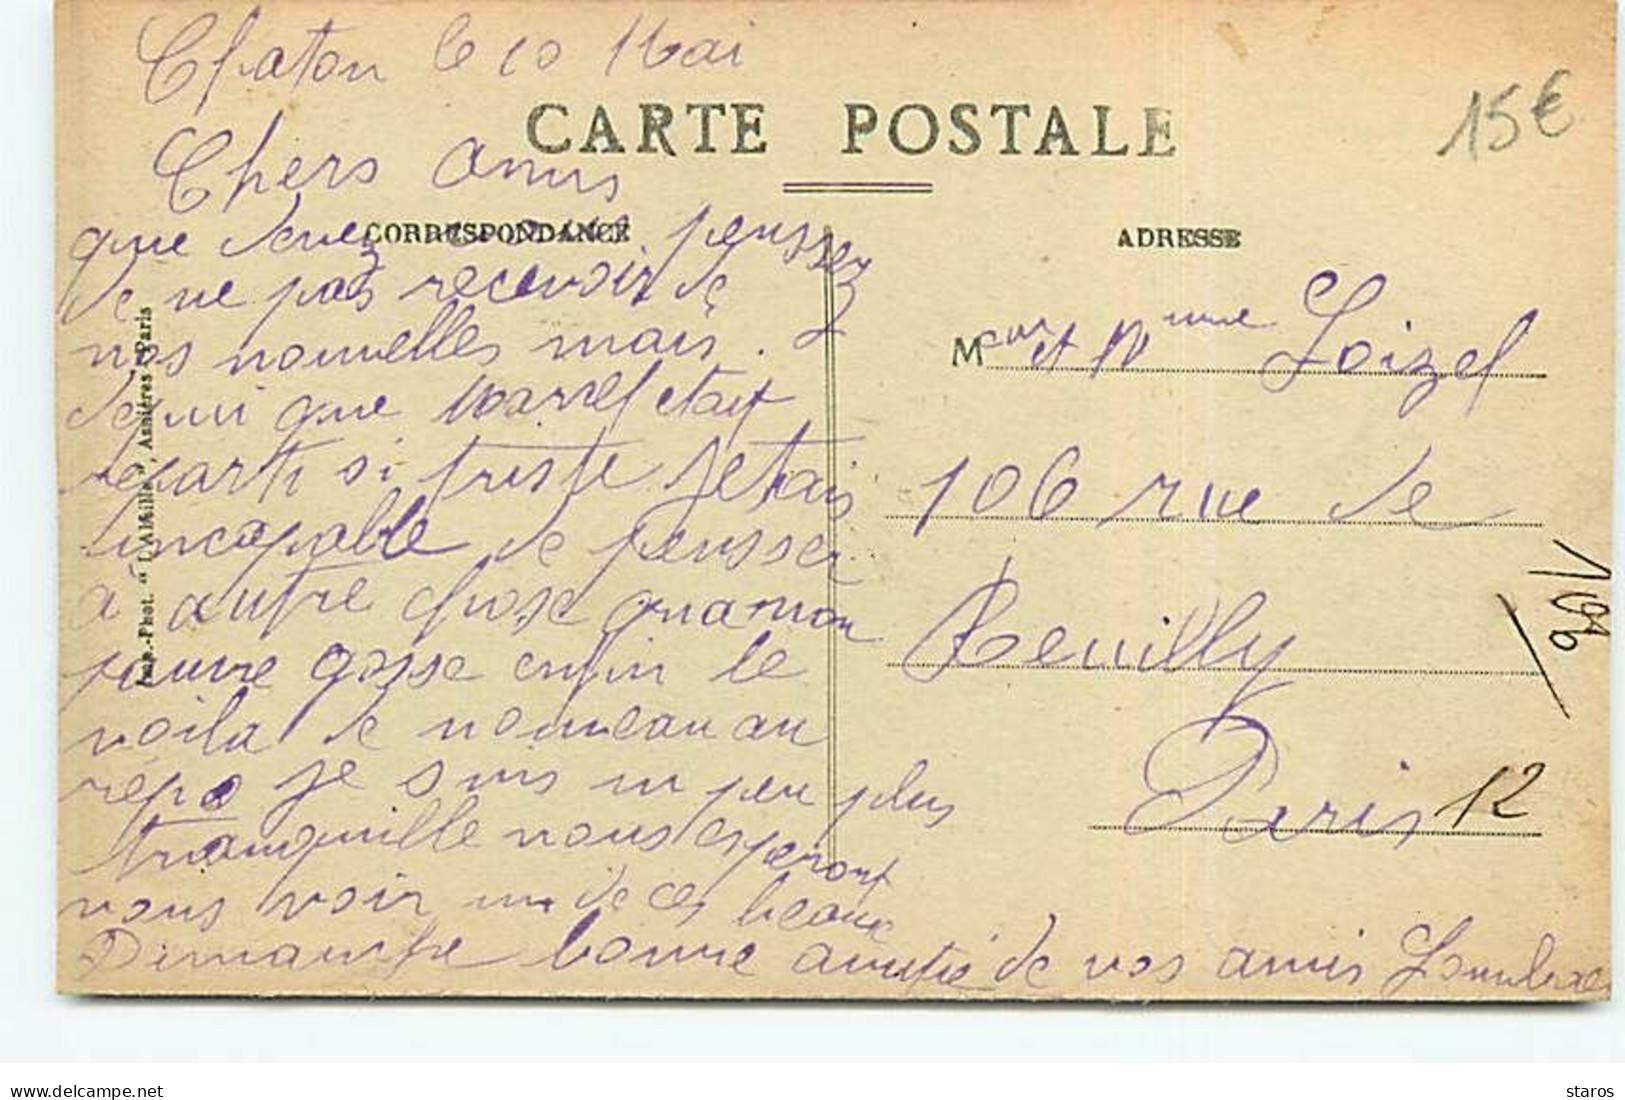 Chatou le 10 Mai
CARTE POSTALE
15€
Chers Amis
CORRESPONDANCE
ADRESSE
que devez vous pensser
de ne pas recevoir de
nos nouvelles mais
depui que Marcel etait
reparti si triste Jetais
incapable de pensser
a autre chose qua mon
pauvre gosse enfin le
voila de nouveau au
repo je suis un peu plus
tranquille nous esperont
vous voir un de ces beaux
Dimanche bonne amitié de vos amis
Imp.-Phot. "L'Abeille", Asnières-Paris
Meur et Mme Loizel
106 rue de
Reuilly
Paris 12
delcampe.net
staros